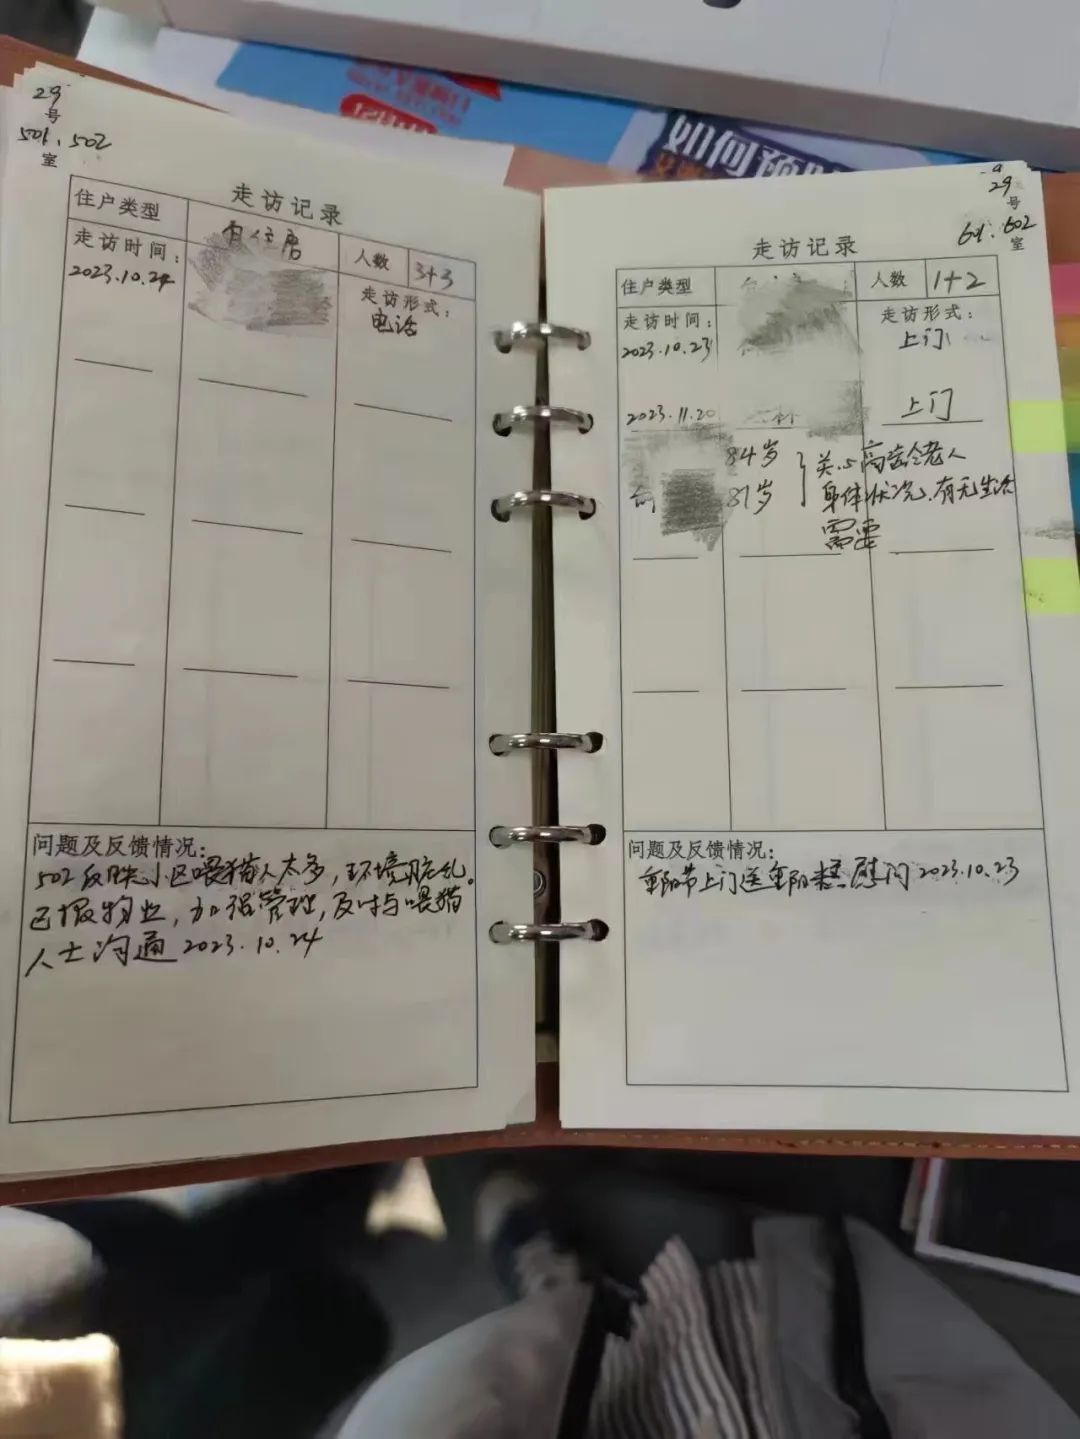 29
号
501、502
室
走访记录
住户类型
自住房
人数
3+3
走访时间：
2023.10.24
走访形式：
电话
问题及反馈情况：
502反映小区喂猫人太多，环境脏乱。
已报物业，加强管理，及时与喂猫
人士沟通 2023.10.24
29
号
601、602
室
走访记录
住户类型
人数
1+2
走访时间：
2023.10.23
走访形式：
上门
2023.11.20
上门
84岁
81岁
关心高龄老人
身体状况、有无生活
需要
问题及反馈情况：
重阳节上门送重阳糕慰问 2023.10.23
如何预